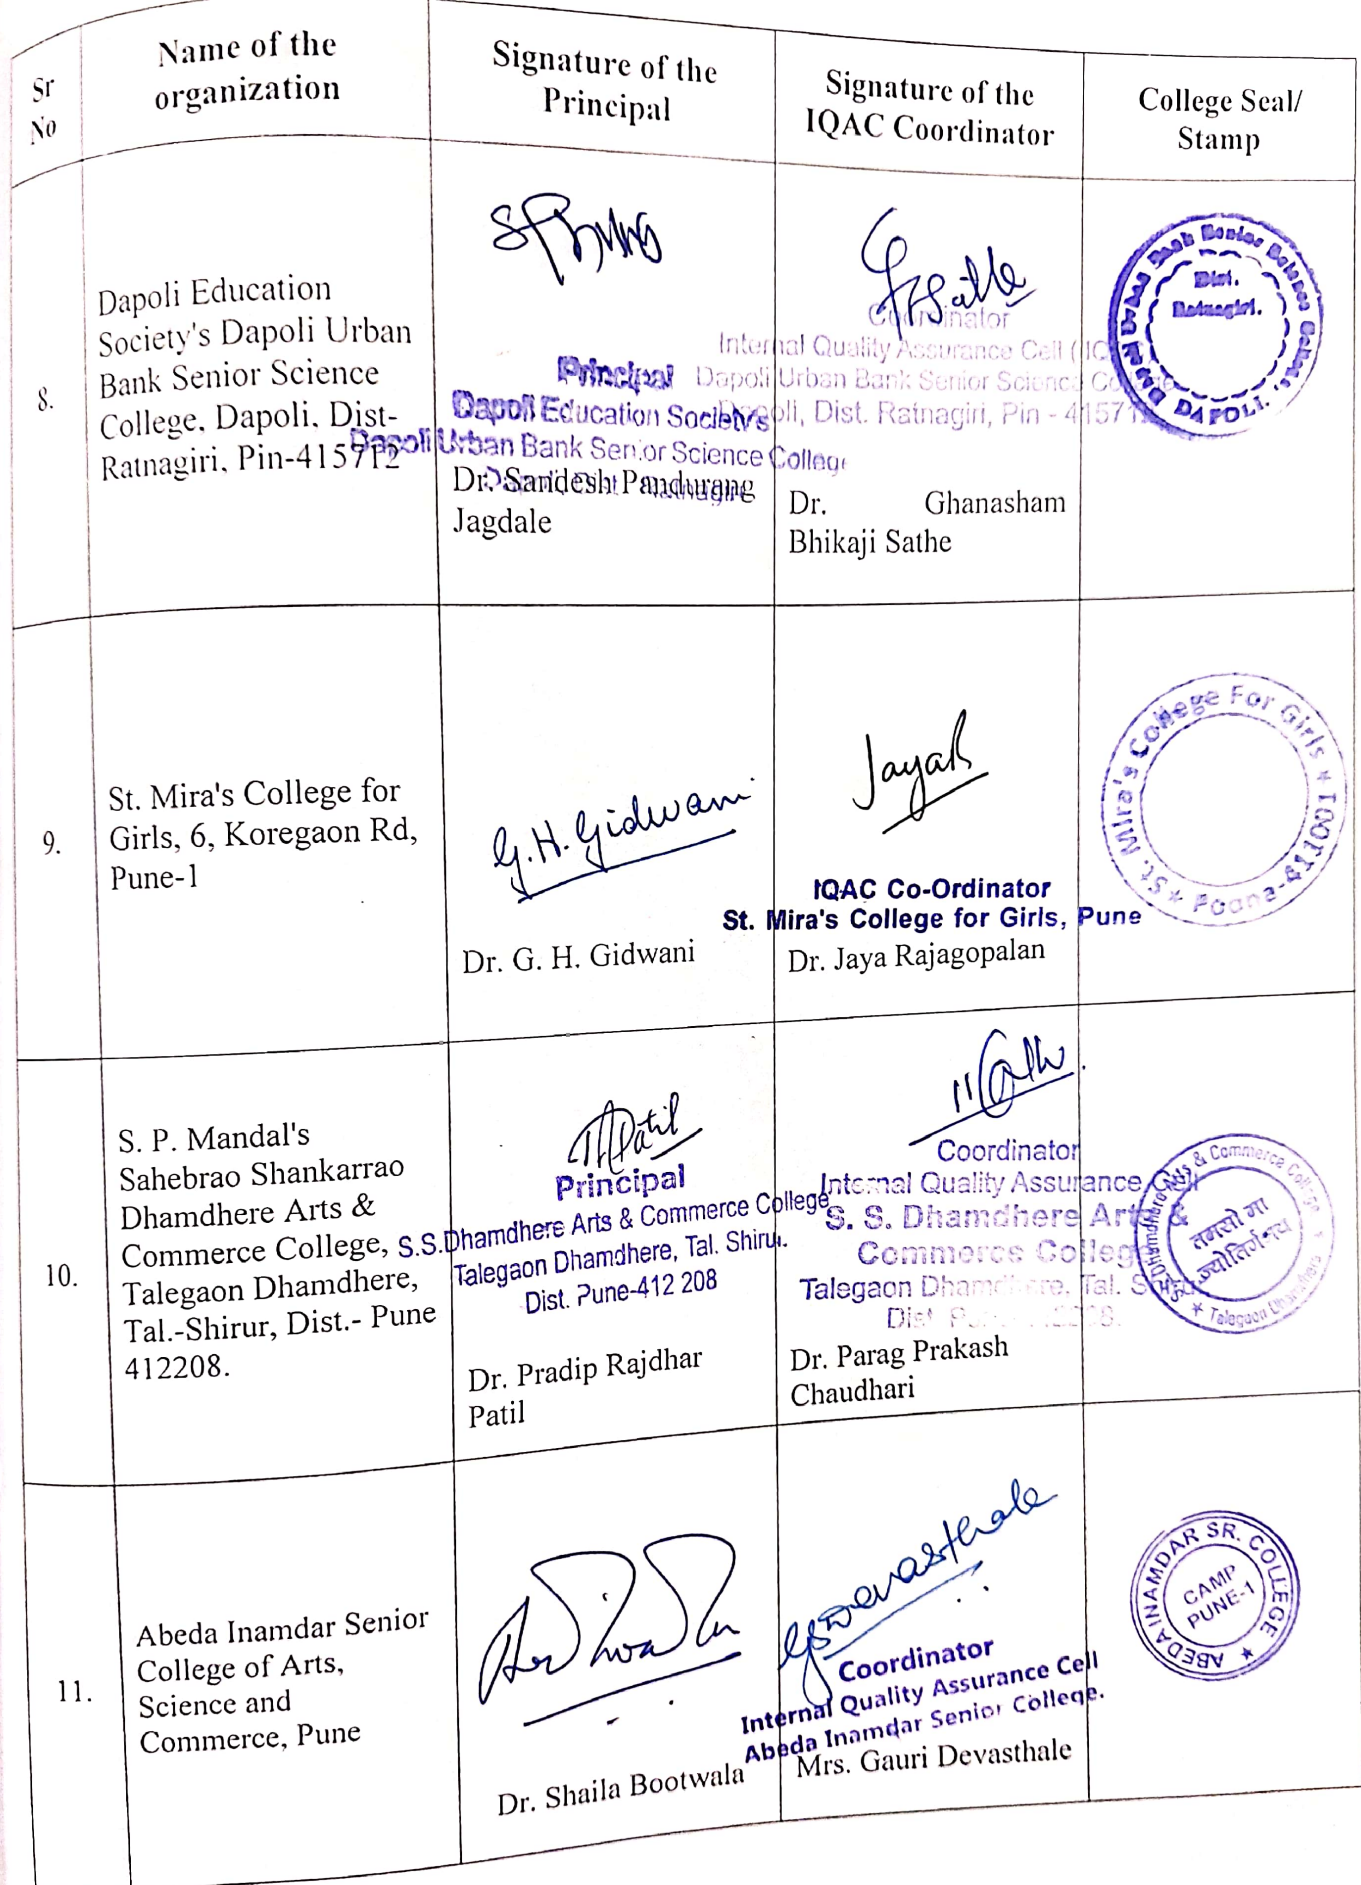 Sr
No
Name of the
organization
Signature of the
Principal
Signature of the
IQAC Coordinator
College Seal/
Stamp
8.
Dapoli Education
Society's Dapoli Urban
Bank Senior Science
College, Dapoli. Dist-
Ratnagiri, Pin-415712
Principal
Dapoli Education Society's
Dapoli Urban Bank Senior Science College
Dr. Sandesh Pandurang
Jagdale
Sathe
Coordinator
Internal Quality Assurance Cell (
Dapoli Urban Bank Senior Science College
Dapoli, Dist. Ratnagiri, Pin - 415712
Dr. Ghanasham
Bhikaji Sathe
Dapoli Urban Bank Senior Science College,
Dist.
Ratnagiri.
DAPOLI.
9.
St. Mira's College for
Girls, 6, Koregaon Rd,
Pune-1
G. H. Gidwani
Dr. G. H. Gidwani
JayaR
IQAC Co-Ordinator
St. Mira's College for Girls, Pune
Dr. Jaya Rajagopalan
St. Mira's College For Girls * Poona-411001 *
10.
S. P. Mandal's
Sahebrao Shankarrao
Dhamdhere Arts &
Commerce College,
Talegaon Dhamdhere,
Tal.-Shirur, Dist.- Pune
412208.
Patil
Principal
S.S.Dhamdhere Arts & Commerce College
Talegaon Dhamdhere, Tal. Shirur.
Dist. Pune-412 208
Dr. Pradip Rajdhar
Patil
Coordinator
Internal Quality Assurance Cell
S. S. Dhamdhere Arts &
Commerce College
Talegaon Dhamdhere, Tal.
Dr. Parag Prakash
Chaudhari
Dhamdhere Arts & Commerce College
तमसो मा
ज्योतिर्गमय
* Talegaon Dhamdhere *
11.
Abeda Inamdar Senior
College of Arts,
Science and
Commerce, Pune
Dr. Shaila Bootwala
GSDevasthale
Coordinator
Internal Quality Assurance Cell
Abeda Inamdar Senior College.
Mrs. Gauri Devasthale
ABEDA INAMDAR SR. COLLEGE *
CAMP
PUNE-1